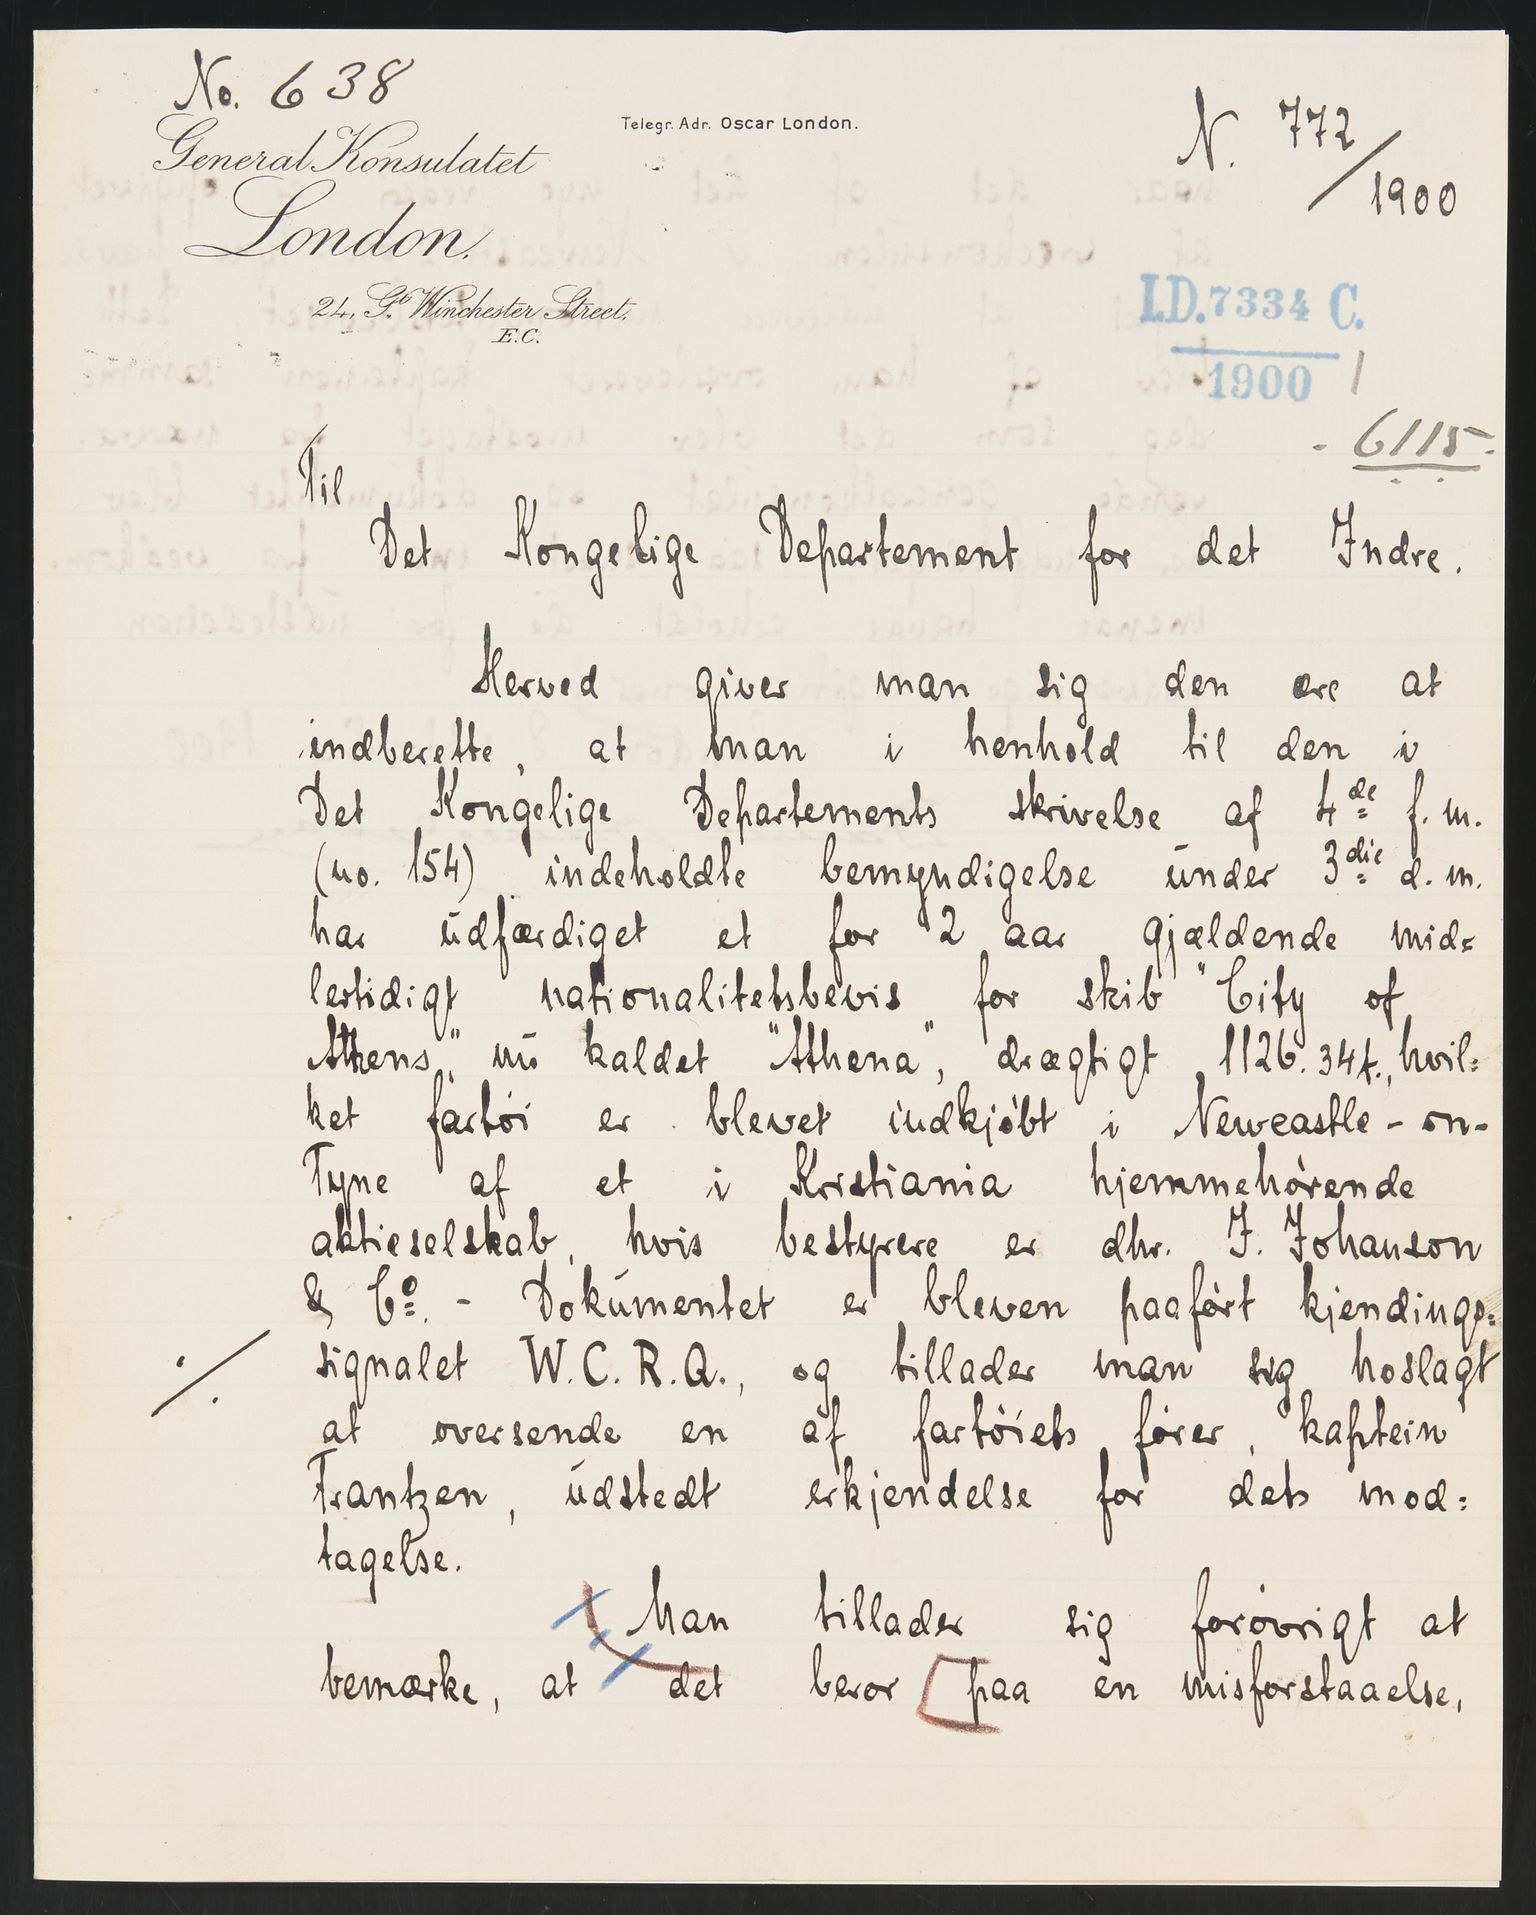 No. 638
General Konsulatet
London.
24, Gt Winchester Street.
E.C.
Telegr. Adr. Oscar London.
N. 772/1900
I.D. 7334 C.
1900
- 6115.
Til
Det Kongelige Departement for det Indre.
Herved giver man sig den ære at
indberette, at man i henhold til den i
Det Kongelige Departements skrivelse af 4de f. m.
(no. 154) indeholdte bemyndigelse under 3die d. m.
har udfærdiget et for 2 aar gjældende mid=
lertidigt nationalitetsbevis for skib "City of
Athens," nu kaldet "Athena", drægtigt 1126.34t., hvil=
ket fartöi er blevet indkjöbt i Newcastle-on-
Tyne af et i Kristiania hjemmehörende
aktieselskab, hvis bestyrere er dhr. J. Johanson
& Co. - Dokumentet er bleven paafört kjendings=
signalet W.C.R.Q., og tillader man sig hoslagt
at oversende en af fartöiets förer, kaptein
Frantzen, udstedt erkjendelse for dets mod=
tagelse.
Man tillader sig forövrigt at
bemærke, at det beror paa en misforstaaelse,